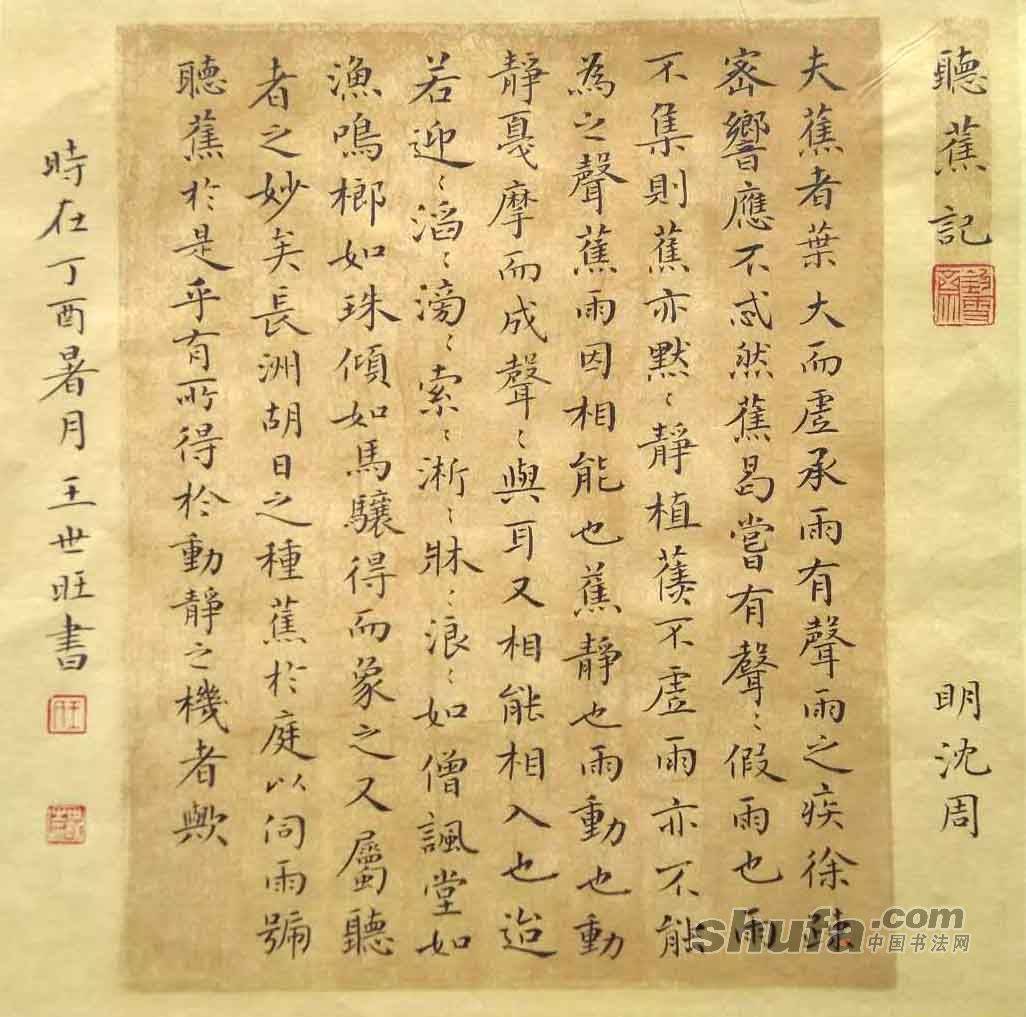 聽蕉記
明沈周
夫蕉者葉大而虛承雨有聲雨之疾徐疎
密響應不忒然蕉曷嘗有聲〻假雨也雨
不集則蕉亦默〻靜植蕉不虛雨亦不能
為之聲蕉雨因相能也蕉靜也雨動也動
靜戛摩而成聲〻與耳又相能相入也迨
若迎〻滔〻滂〻索〻淅〻牀〻浪〻如僧諷堂如
漁鳴榔如珠傾如馬驤得而象之又屬聽
者之妙矣長洲胡日之種蕉於庭以伺雨號
聽蕉於是乎有所得於動靜之機者歟
時在丁酉暑月王世旺書
shufa.com
中国书法网